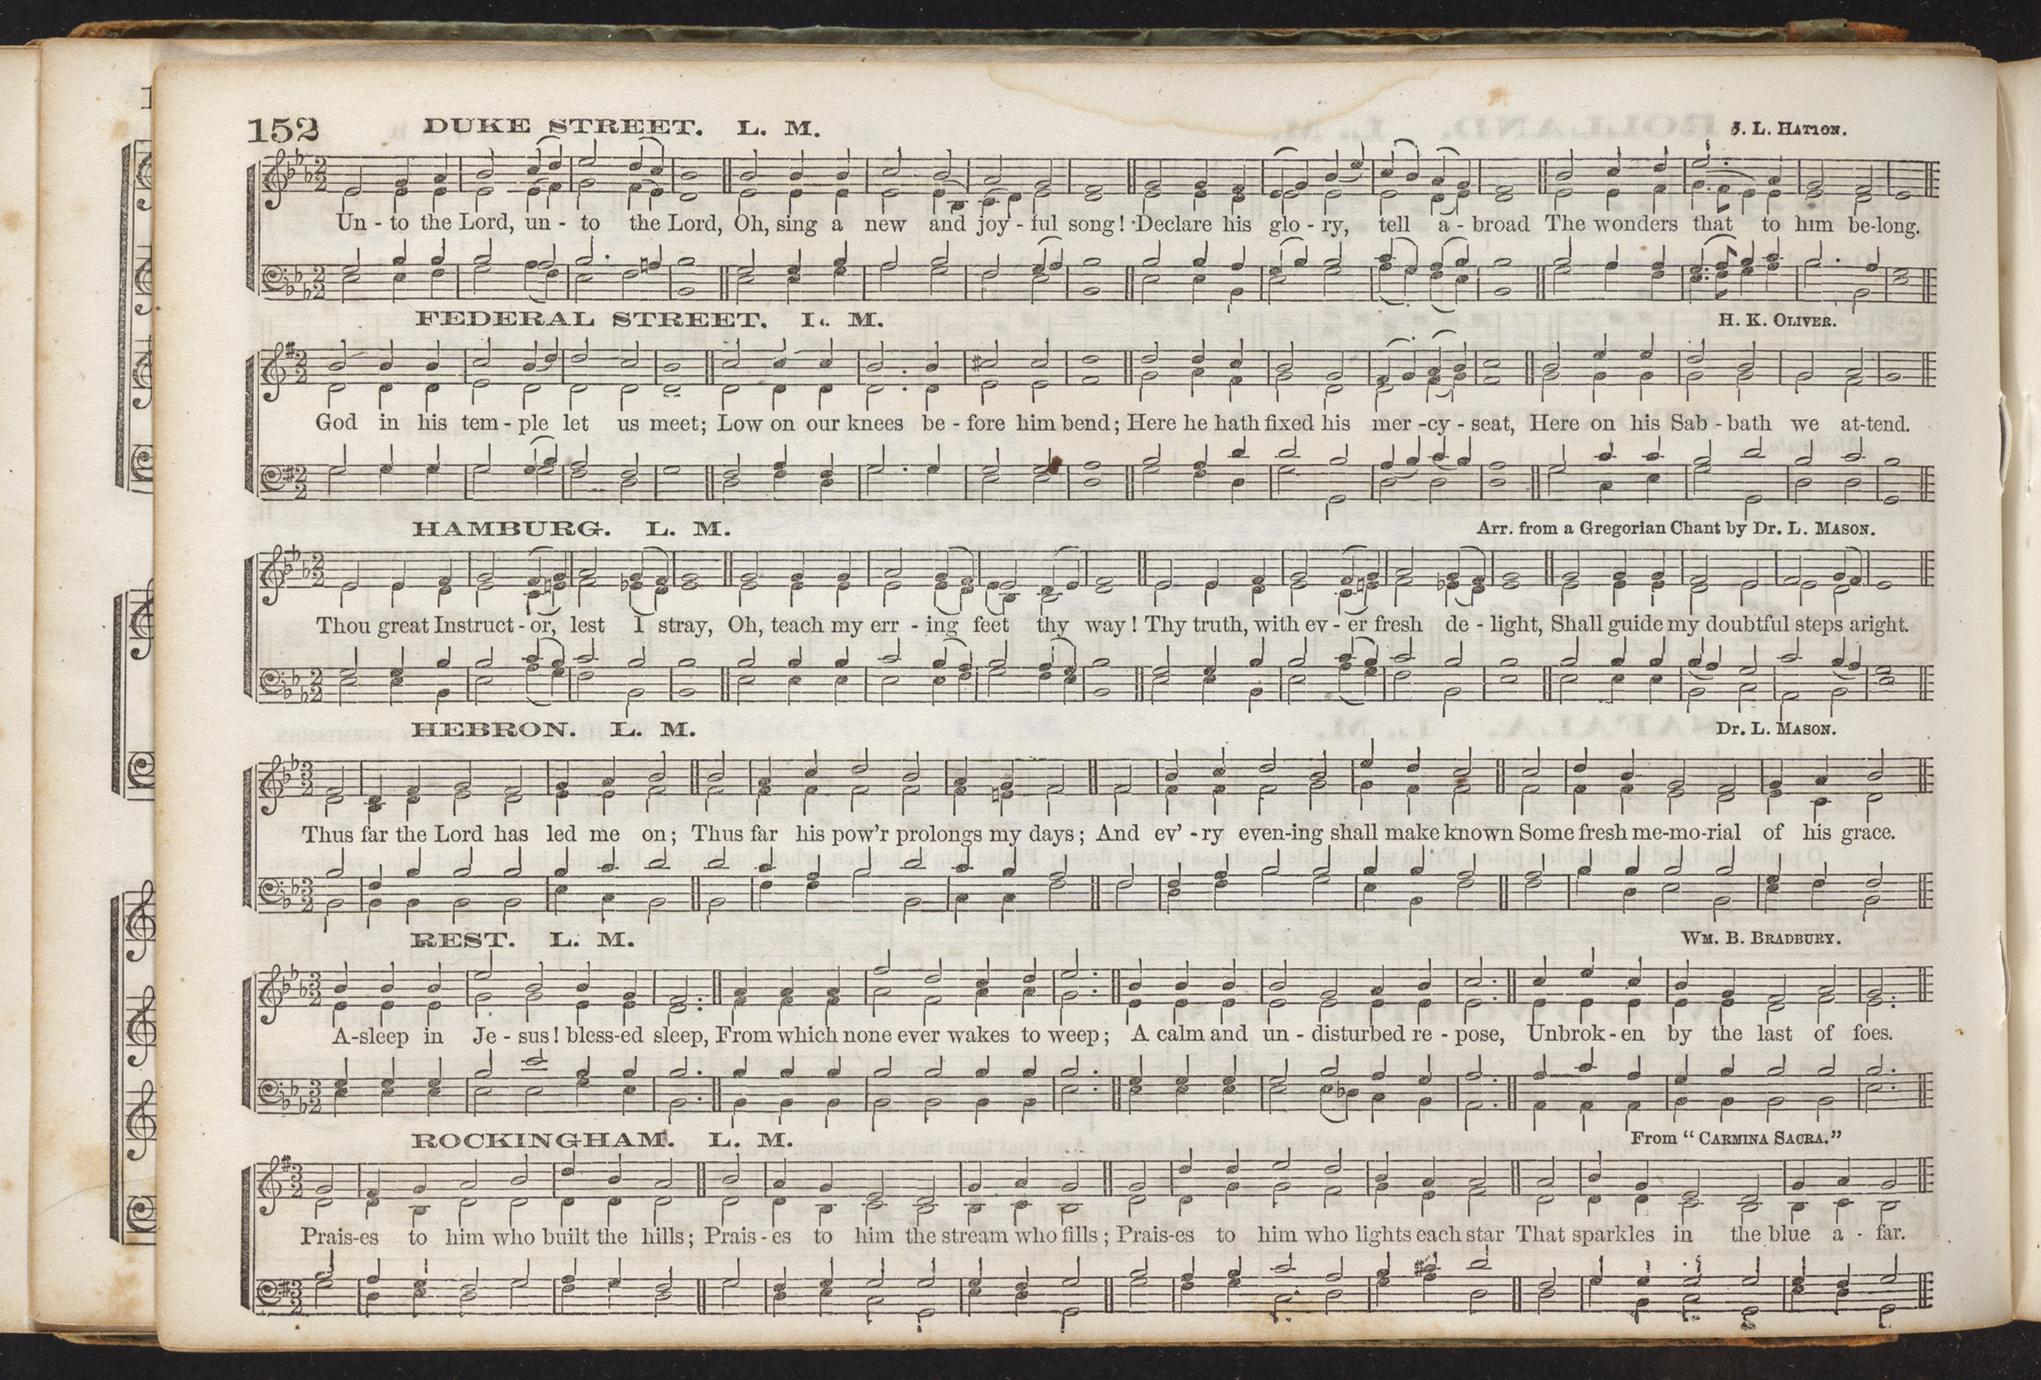 152 DUKE STREET. L. M. J. L. HATTON.
Un - to the Lord, un - to the Lord, Oh, sing a new and joy - ful song! Declare his glo - ry, tell a - broad The wonders that to him be-long.
FEDERAL STREET. L. M. H. K. OLIVER.
God in his tem - ple let us meet; Low on our knees be - fore him bend; Here he hath fixed his mer - cy - seat, Here on his Sab - bath we at-tend.
HAMBURG. L. M. Arr. from a Gregorian Chant by Dr. L. MASON.
Thou great Instruct - or, lest I stray, Oh, teach my err - ing feet thy way! Thy truth, with ev - er fresh de - light, Shall guide my doubtful steps aright.
HEBRON. L. M. Dr. L. MASON.
Thus far the Lord has led me on; Thus far his pow'r prolongs my days; And ev' - ry even-ing shall make known Some fresh me-mo-rial of his grace.
REST. L. M. WM. B. BRADBURY.
A-sleep in Je - sus! bless-ed sleep, From which none ever wakes to weep; A calm and un - disturbed re - pose, Unbrok - en by the last of foes.
ROCKINGHAM. L. M. From "CARMINA SACRA."
Prais-es to him who built the hills; Prais - es to him the stream who fills; Prais-es to him who lights each star That sparkles in the blue a - far.